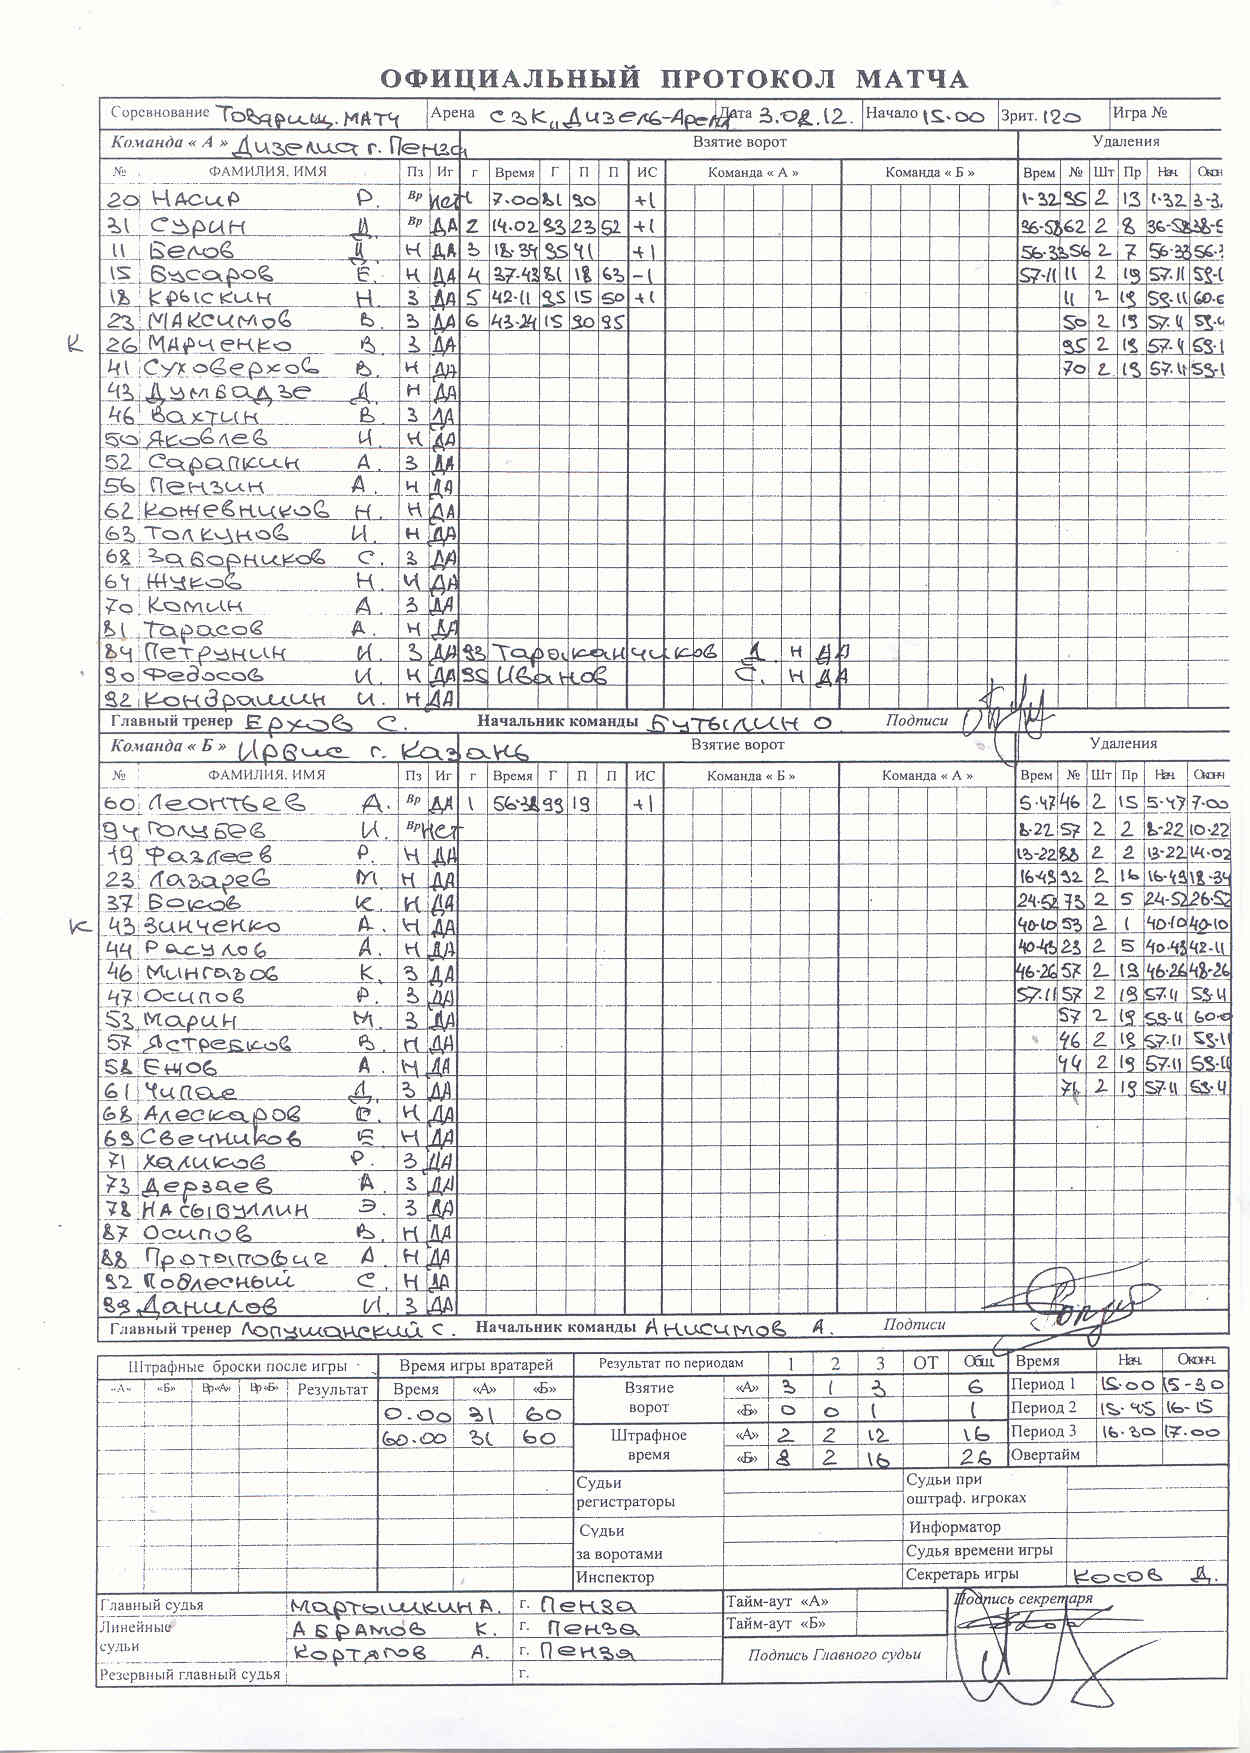 ОФИЦИАЛЬНЫЙ ПРОТОКОЛ МАТЧА
Соревнование Товарищ. матч Арена СЗК "Дизель-Арена Дата 3.08.12. Начало 15.00 Зрит. 120 Игра №
Команда « А » Дизелист г. Пенза Взятие ворот Удаления
№ ФАМИЛИЯ, ИМЯ Пз Иг г Время Г П П ИС Команда « А » Команда « Б » Врем № Шт Пр Нач. Окон
20 Насир Р. Вр нет 1 7.00 81 90 +1 1-32 95 2 13 1-32 3-3
31 Сурин Д. Вр ДА 2 14.02 93 23 52 +1 36-58 62 2 8 36-58 38-5
11 Белов Д. Н ДА 3 18-34 95 41 +1 56-33 56 2 7 56-33 56-
15 Бусаров Е. Н ДА 4 37-43 81 18 63 -1 57-11 11 2 19 57.11 59-1
18 Крыскин Н. З ДА 5 42-11 95 15 50 +1 11 2 19 59-11 60-0
23 Максимов В. З ДА 6 43-24 15 90 95 50 2 19 57.11 59-1
К 26 Марченко В. З ДА 95 2 19 57.11 59-1
41 Суховерхов В. Н ДА 70 2 19 57.11 59-1
43 Думбадзе Д. Н ДА
46 Вахтин В. З ДА
50 Яковлев И. Н ДА
52 Сарапкин А. З ДА
56 Пензин А. Н ДА
62 Кожевников Н. Н ДА
63 Толкунов И. Н ДА
68 Заборников С. З ДА
64 Жуков Н. Н ДА
70 Комин А. З ДА
81 Тарасов А. Н ДА
84 Петрунин И. З ДА 93 Тараканчиков Д. Н ДА
90 Федосов И. Н ДА 95 Иванов С. Н ДА
92 Кондрашин И. Н ДА
Главный тренер Ерхов С. Начальник команды Бутылин О Подписи
Команда « Б » Ирбис г. Казань Взятие ворот Удаления
№ ФАМИЛИЯ, ИМЯ Пз Иг г Время Г П П ИС Команда « Б » Команда « А » Врем № Шт Пр Нач. Оконч
60 Леонтьев А. Вр ДА 1 56-38 99 19 +1 5-47 46 2 15 5-47 7-00
94 Голубев И. Вр нет 8-22 57 2 2 8-22 10-22
19 Фазлеев Р. Н ДА 13-22 88 2 2 13-22 14-02
23 Лазарев М. Н ДА 16-49 92 2 16 16-49 18-34
37 Боков К. Н ДА 24-52 73 2 5 24-52 26-52
К 43 Зинченко А. Н ДА 40-10 53 2 1 40-10 40-10
44 Расулов А. Н ДА 40-43 23 2 5 40-43 42-11
46 Мингазов К. З ДА 46-26 57 2 19 46-26 48-26
47 Осипов Р. З ДА 57-11 57 2 19 57.11 59-11
53 Марин М. З ДА 57 2 19 59-11 60-0
57 Ястребков В. Н ДА 46 2 19 57-11 59-11
58 Ежов А. Н ДА 44 2 19 57-11 59-11
61 Чипае Д. З ДА 71 2 19 57-11 59-11
68 Алескаров Е. Н ДА
69 Свечников Е. Н ДА
71 Халиков Р. З ДА
73 Дерзаев А. З ДА
78 Насыбуллин Э. З ДА
87 Осипов В. Н ДА
88 Протапович А. Н ДА
92 Подлесный С. Н ДА
99 Данилов И. З ДА
Главный тренер Лопушанский С. Начальник команды Анисимов А. Подписи
Штрафные броски после игры Время игры вратарей Результат по периодам 1 2 3 ОТ Общ. Время Нач. Оконч.
«А» «Б» Вр«А» Вр«Б» Результат Время «А» «Б» Взятие ворот «А» 3 1 3 6 Период 1 15.00 15-30
0.00 31 60 «Б» 0 0 1 1 Период 2 15-45 16-15
60.00 31 60 Штрафное время «А» 2 2 12 16 Период 3 16-30 17.00
«Б» 8 2 16 26 Овертайм
Судьи регистраторы Судьи при оштраф. игроках
Судьи за воротами Информатор
Судья времени игры
Инспектор Секретарь игры Косов Д.
Главный судья Мартышкин А. г. Пенза Тайм-аут «А» Подпись секретаря
Линейные судьи Абрамов К. г. Пенза Тайм-аут «Б»
Кортяпов А. г. Пенза Подпись Главного судьи
Резервный главный судья г.